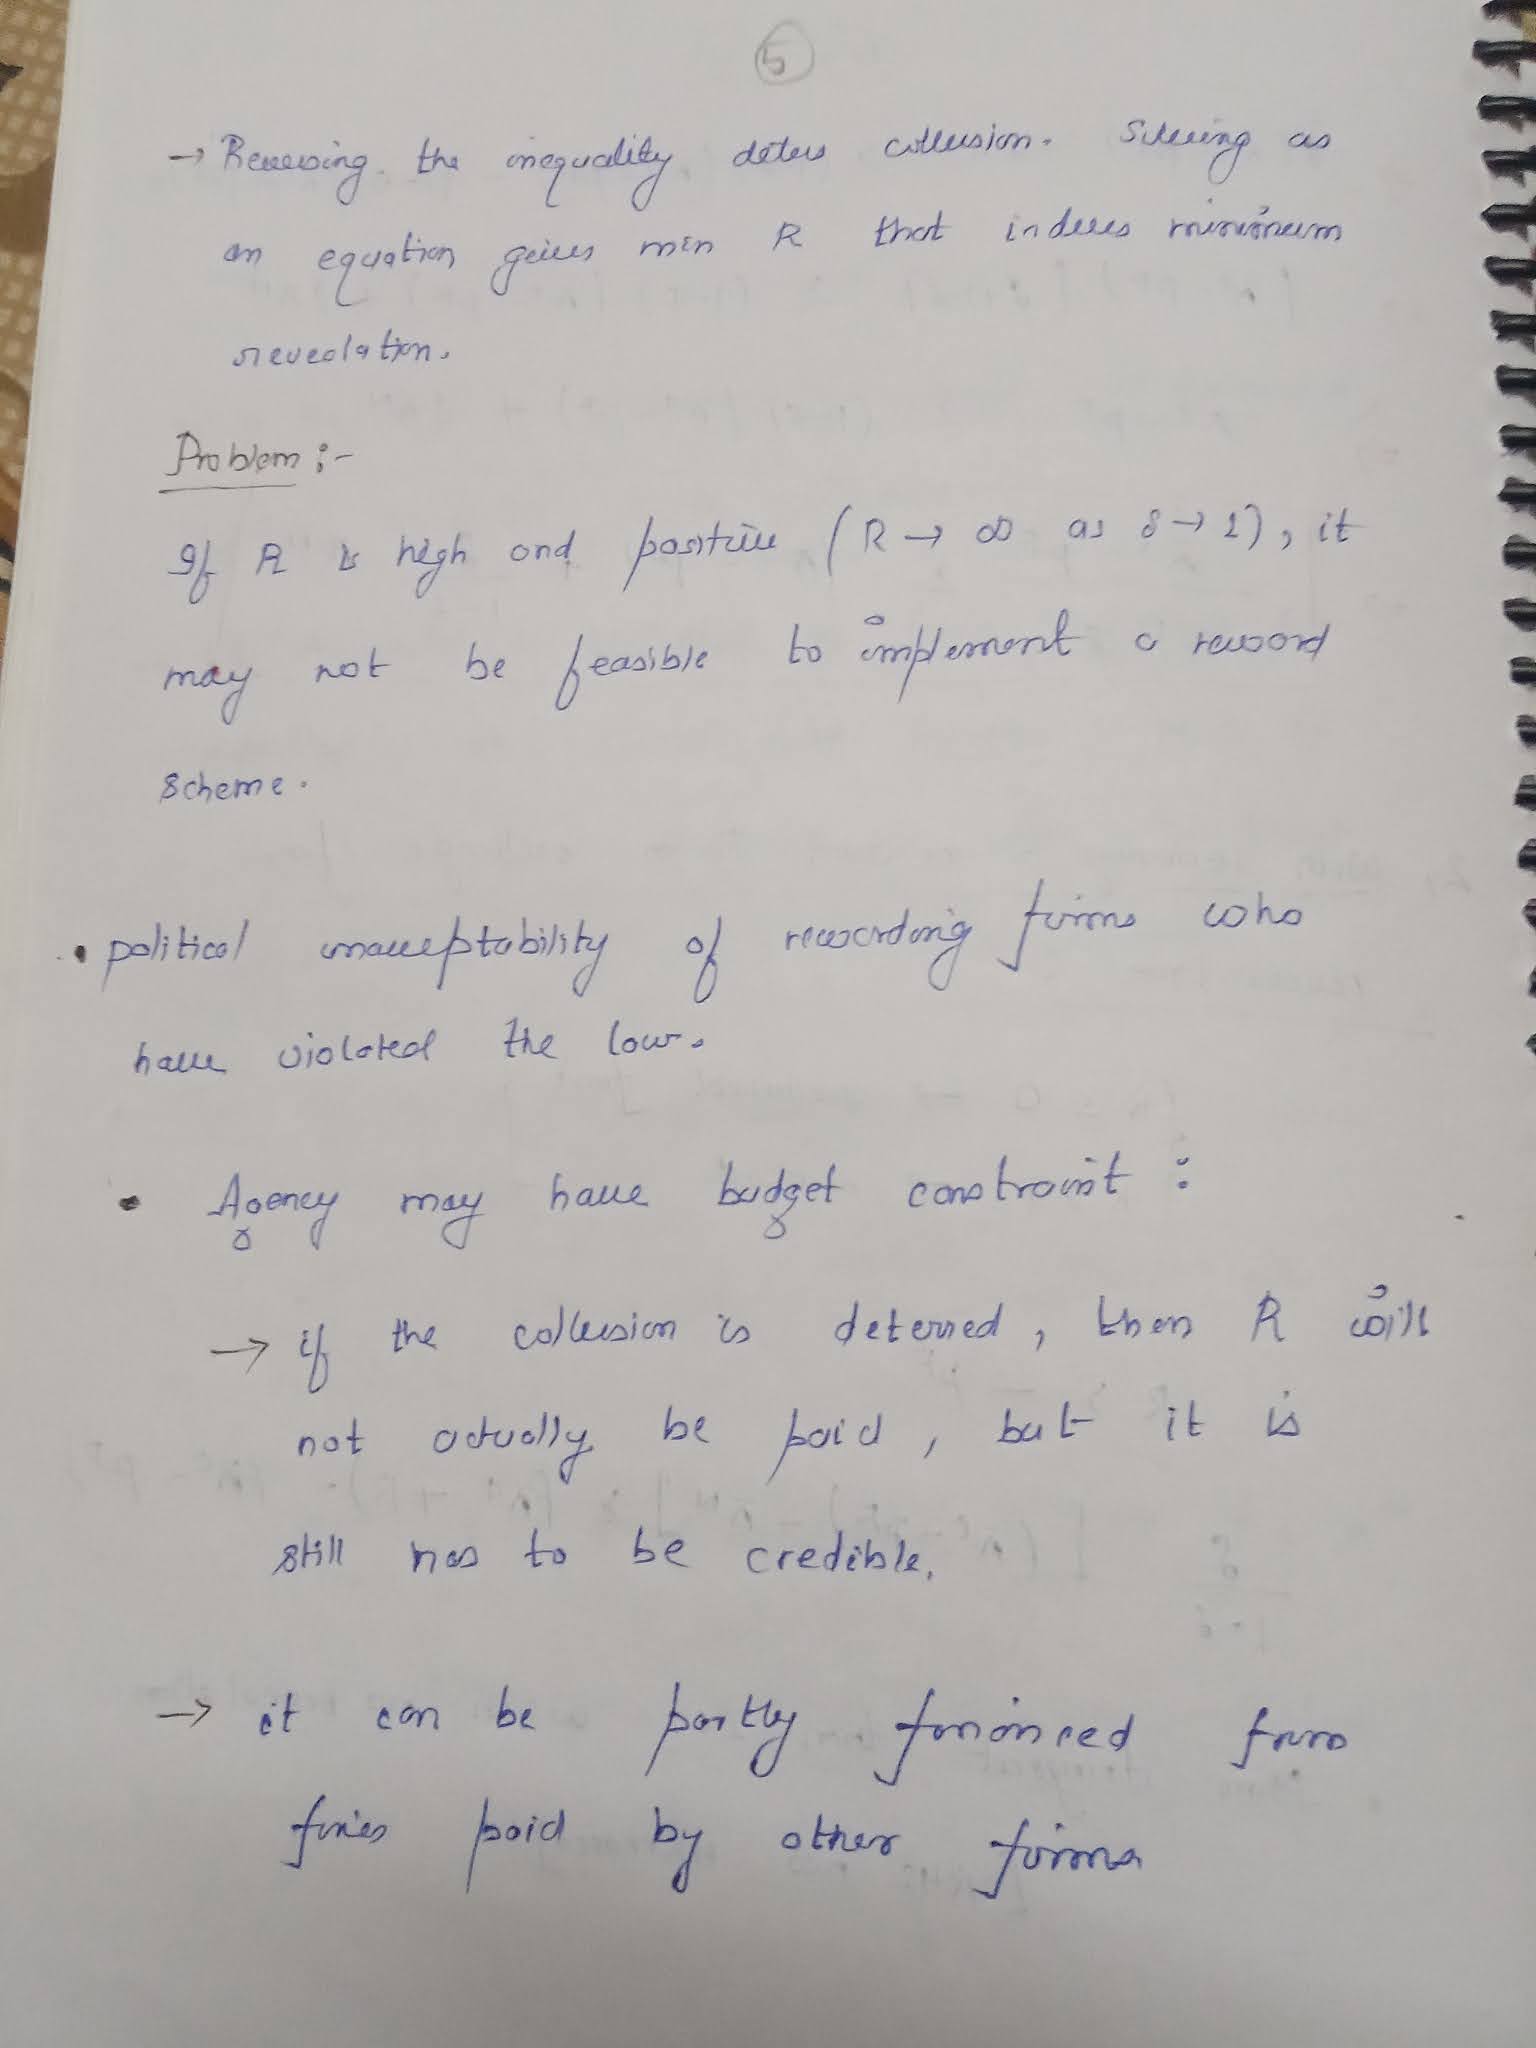 5
→ Reversing the inequality deters collusion. Solving as
an equation gives min R that induces minimum
revelation.
Problem :-
If R is high and positive (R → ∞ as δ → 1), it
may not be feasible to implement a reward
scheme.
• political unacceptability of rewarding firms who
have violated the law.
• Agency may have budget constraint :
→ if the collusion is deterred, then R will
not actually be paid, but it is
still has to be credible.
→ it can be partly financed from
fines paid by other firms